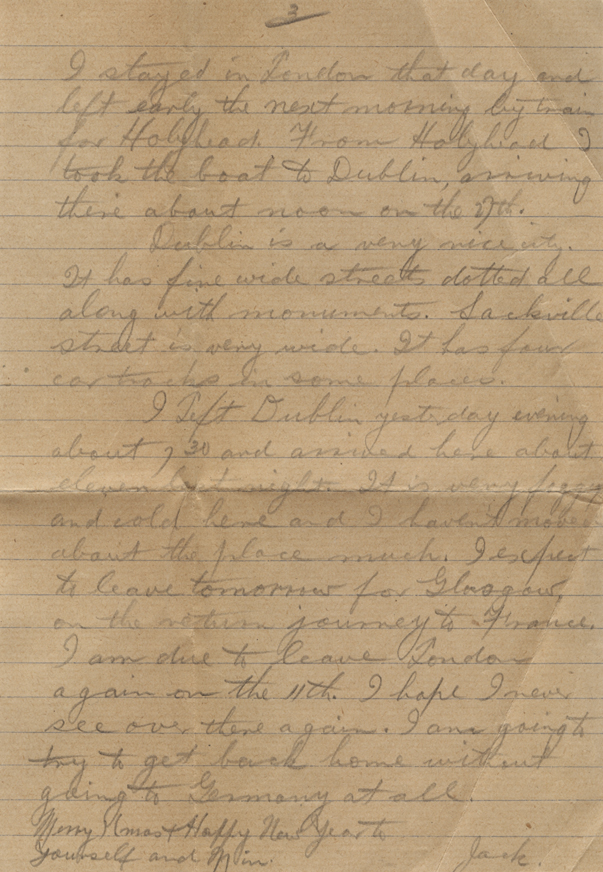 3
I stayed in London that day and
left early the next morning by train
for Holyhead. From Holyhead I
took the boat to Dublin, arriving
there about noon on the 27th.
Dublin is a very nice city.
It has fine wide streets dotted all
along with monuments. Sackville
street is very wide. It has four
car tracks in some places.
I left Dublin yesterday evening
about 7 30 and arrived here about
eleven last night. It is very foggy
and cold here and I haven't moved
about the place much. I expect
to leave tomorrow for Glasgow,
on the return journey to France.
I am due to leave London
again on the 11th. I hope I never
see over there again. I am going to
try to get back home without
going to Germany at all.
Merry Xmas & Happy New Year to
Yourself and Min.
Jack.